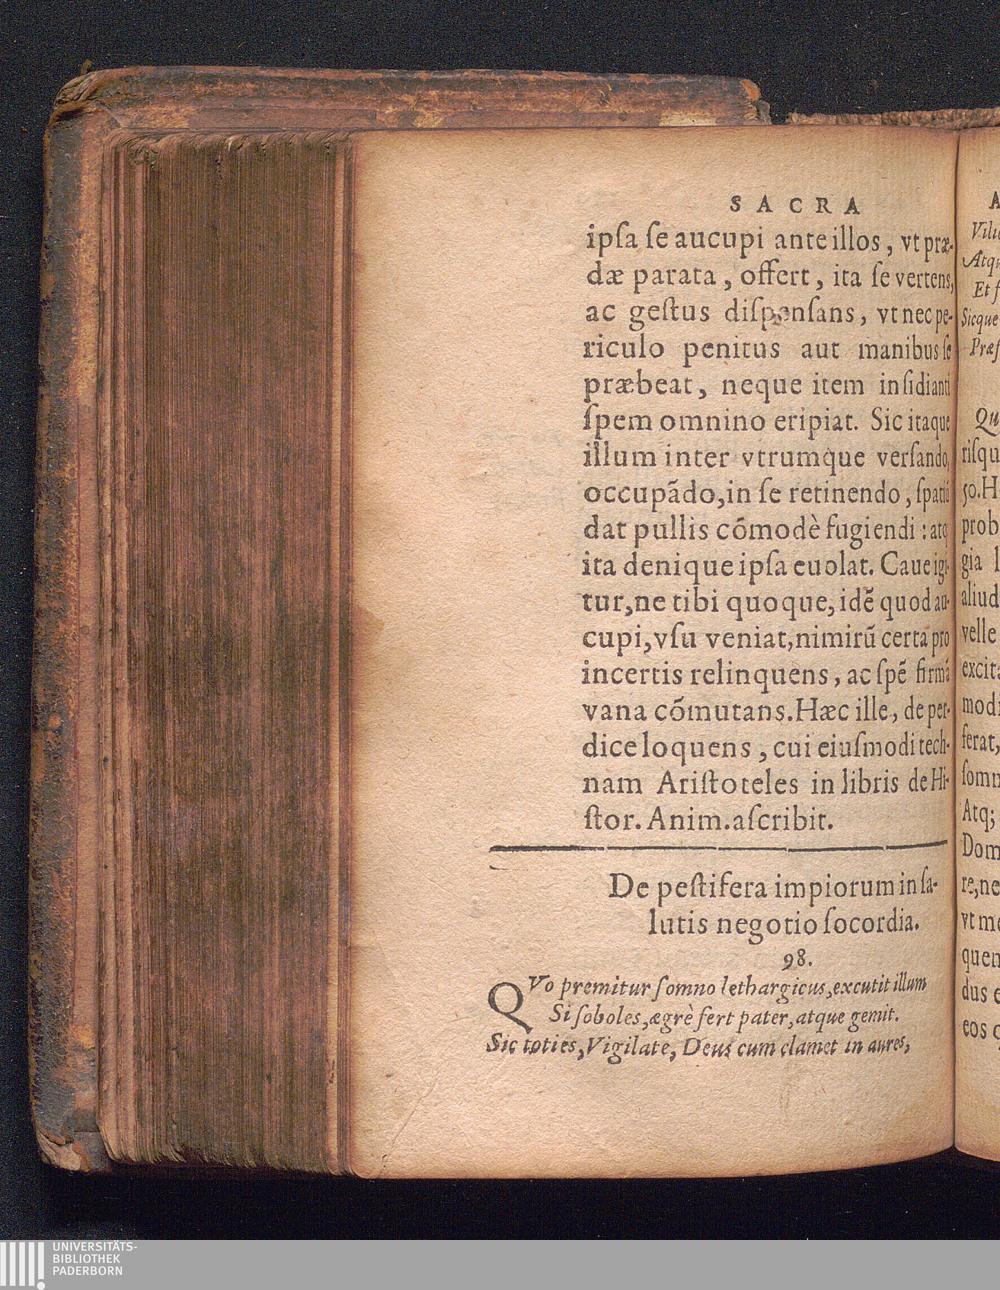 SACRA
ipſa ſe aucupi ante illos, vt præ-
dæ parata, offert, ita ſe vertens,
ac geſtus diſpenſans, vt nec pe-
riculo penitus aut manibus ſe
præbeat, neque item inſidianti
ſpem omnino eripiat. Sic itaque
illum inter vtrumque verſando,
occupãdo, in ſe retinendo, ſpatiũ
dat pullis cõmodè fugiendi : atq
ita denique ipſa euolat. Caue igi-
tur, ne tibi quoque, idẽ quod au-
cupi, vſu veniat, nimirũ certa pro
incertis relinquens, ac ſpẽ firmã
vana cõmutans. Hæc ille, de per-
dice loquens, cui eiuſmodi tech-
nam Ariſtoteles in libris de Hi-
ſtor. Anim. aſcribit.
De peſtifera impiorum in ſa-
lutis negotio ſocordia.
98.
QVo premitur ſomno lethargicus, excutit illum
Si ſoboles, ægrè fert pater, atque gemit.
Sic toties, Vigilate, Deus cum clamet in aures,
A
Vili
Atq
Et ſ
Sicque
Præſ
Qu
riſqu
50. H
prob
gia l
aliud
velle
excit
modi
ferat,
ſomn
Atq;
Dom
re, ne
vt m
quen
dus e
eos q
UNIVERSITÄTS-
BIBLIOTHEK
PADERBORN